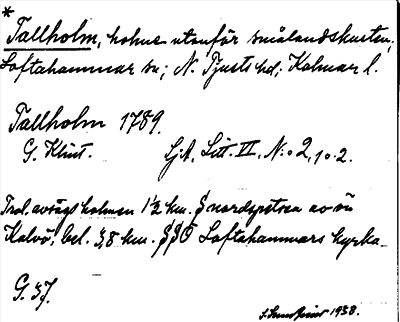 *
Tallholm, holme utanför smålandskusten,
Loftahammar sn; N. Tjusts hd; Kalmar l.
Tallholm 1789.
G. Klint. Sjk. Litt. VI. N:o 2, 1 o. 2.
Trol. avsågs holmen 1 1/2 km. S nordspetsen av ön
Kalvö, bel. 3,8 km. SSO Loftahammars kyrka.
G. 37.
1938.